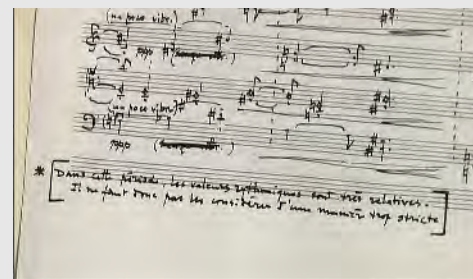 (un poco vibr.)
ppp
(un poco vibr.)
ppp
* [Dans cette période, les valeurs rythmiques sont très relatives.
Il ne faut donc pas les considérer d'une manière trop stricte]